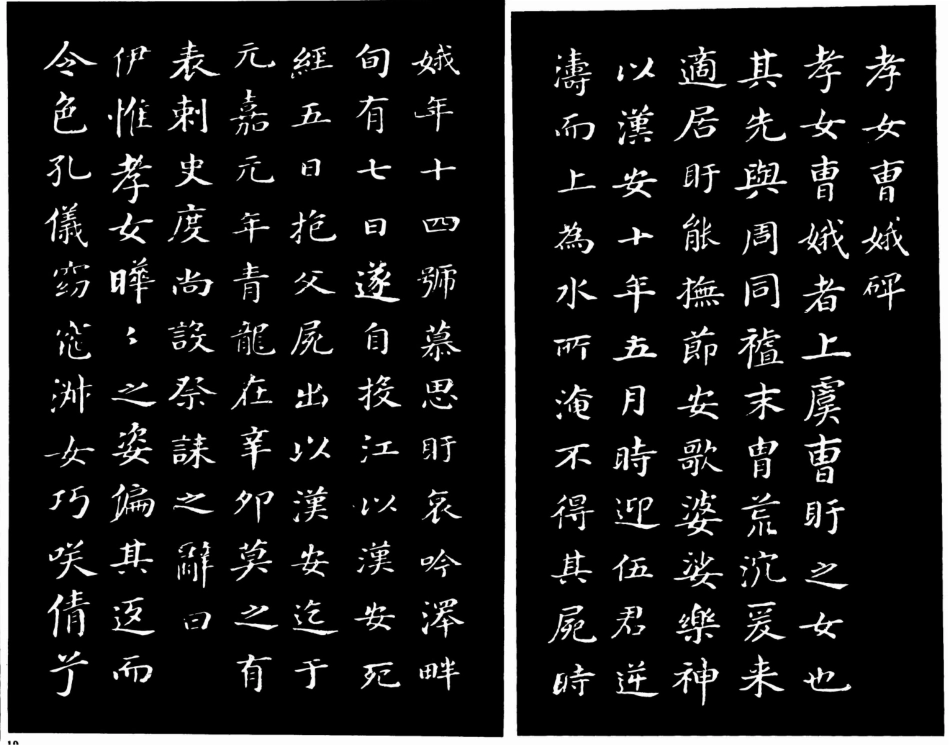 孝女曹娥碑
孝女曹娥者上虞曹盱之女也
其先與周同祖末冑荒沉爰来
適居盱能撫節安歌婆娑樂神
以漢安十年五月時迎伍君逆
濤而上為水所淹不得其屍時
娥年十四號慕思盱哀吟澤畔
旬有七日遂自投江以漢安死
經五日抱父屍出以漢安迄于
元嘉元年青龍在辛卯莫之有
表刺史度尚設祭誄之辭曰
伊惟孝女曄〻之姿偏其返而
令色孔儀窈窕淋女巧咲倩兮
10